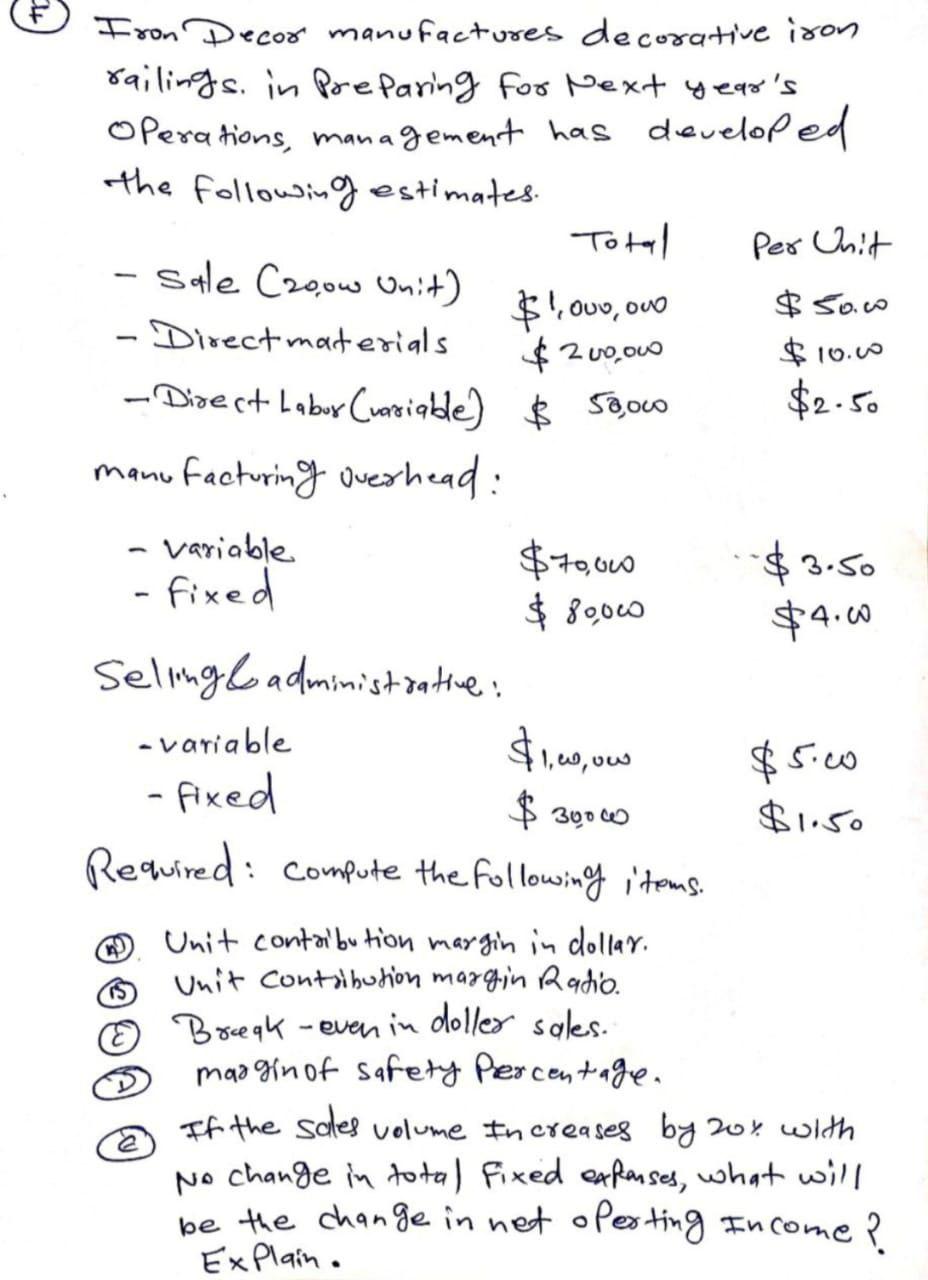 F Iron Decor manufactures decorative iron
railings. in Preparing for Next year's
Operations, management has developed
the following estimates.
Total Per Unit
- Sale (20,000 Unit) $1,000,000 $50.00
- Direct materials $200,000 $10.00
- Direct Labor (variable) $ 50,000 $2.50
manufacturing overhead:
- variable $70,000 $3.50
- fixed $ 80,000 $4.00
Selling & administrative:
- variable $1,00,000 $5.00
- fixed $ 30,000 $1.50
Required: compute the following items.
A Unit contribution margin in dollar.
B Unit Contribution margin Ratio.
C Break-even in doller sales.
D margin of safety Percentage.
E If the sales volume Increases by 20% with
No change in total fixed expenses, what will
be the change in net operting Income?
Explain.